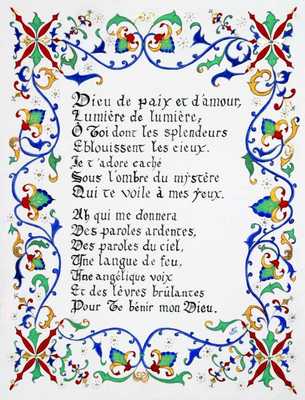 Dieu de paix et d'amour,
Lumière de lumière,
Ô Toi dont les splendeurs
Eblouissent les cieux.
Je t'adore caché
Sous l'ombre du mystère
Qui te voile à mes yeux.
Ah qui me donnera
Des paroles ardentes,
Des paroles du ciel,
Une langue de feu,
Une angélique voix
Et des lèvres brûlantes
Pour Te bénir mon Dieu.